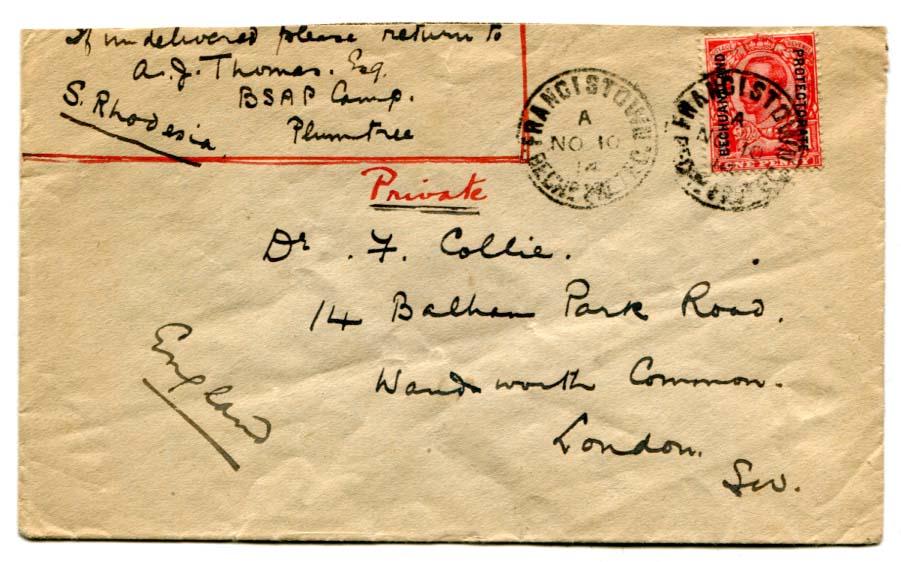 If undelivered please return to
A.J. Thomas. Esq.
BSAP Camp.
Plumtree
S. Rhodesia.
FRANCISTOWN
A
NO 10
14
BECH. PROTEC.
FRANCISTOWN
A
10
BECHUANALAND
PROTECTORATE
ONE PENNY
Private
Dr. F. Collie.
14 Balham Park Road.
Wandsworth Common.
London.
SW.
England